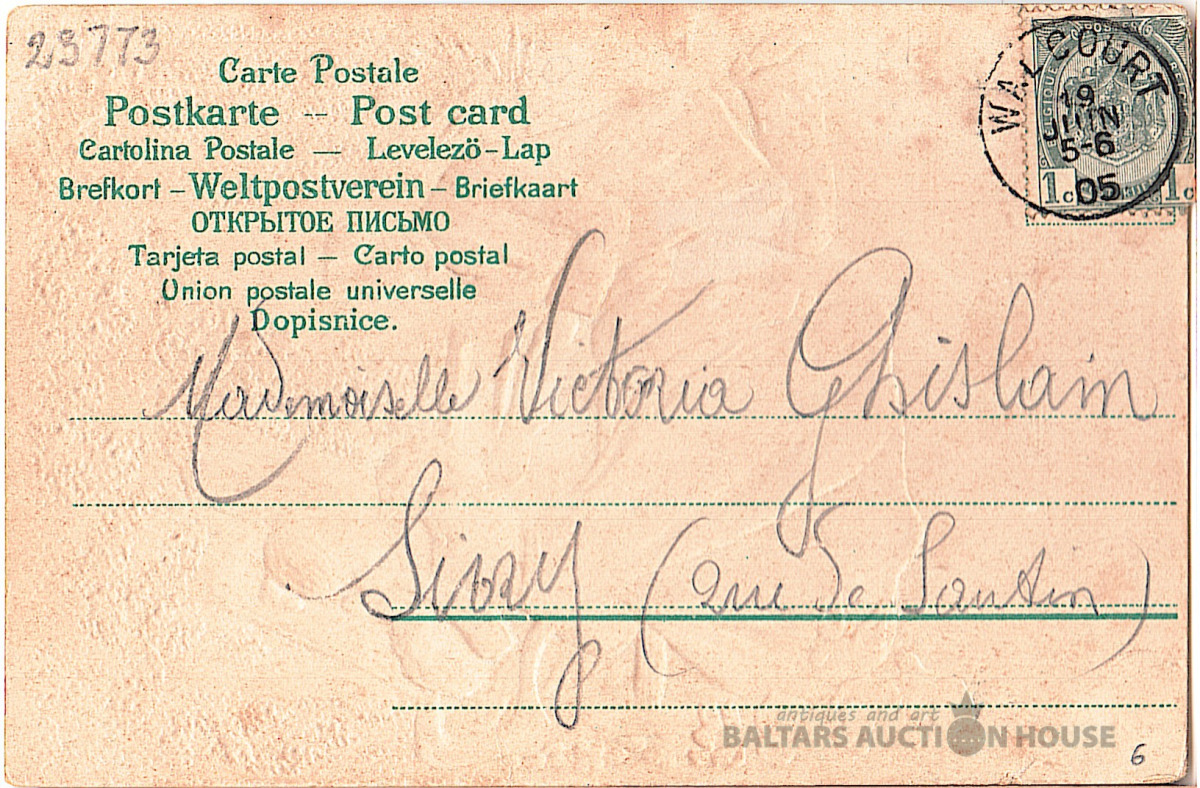 23773
Carte Postale
Postkarte -- Post card
Cartolina Postale — Levelezö-Lap
Brefkort – Weltpostverein – Briefkaart
ОТКРЫТОЕ ПИСЬМО
Tarjeta postal — Carto postal
Union postale universelle
Dopisnice.
WALCOURT
19
JUIN
5-6
05
1c 1c
Mademoiselle Victoria Ghislain
Sivry (rue de)
antiques and art
BALTARS AUCTION HOUSE
6